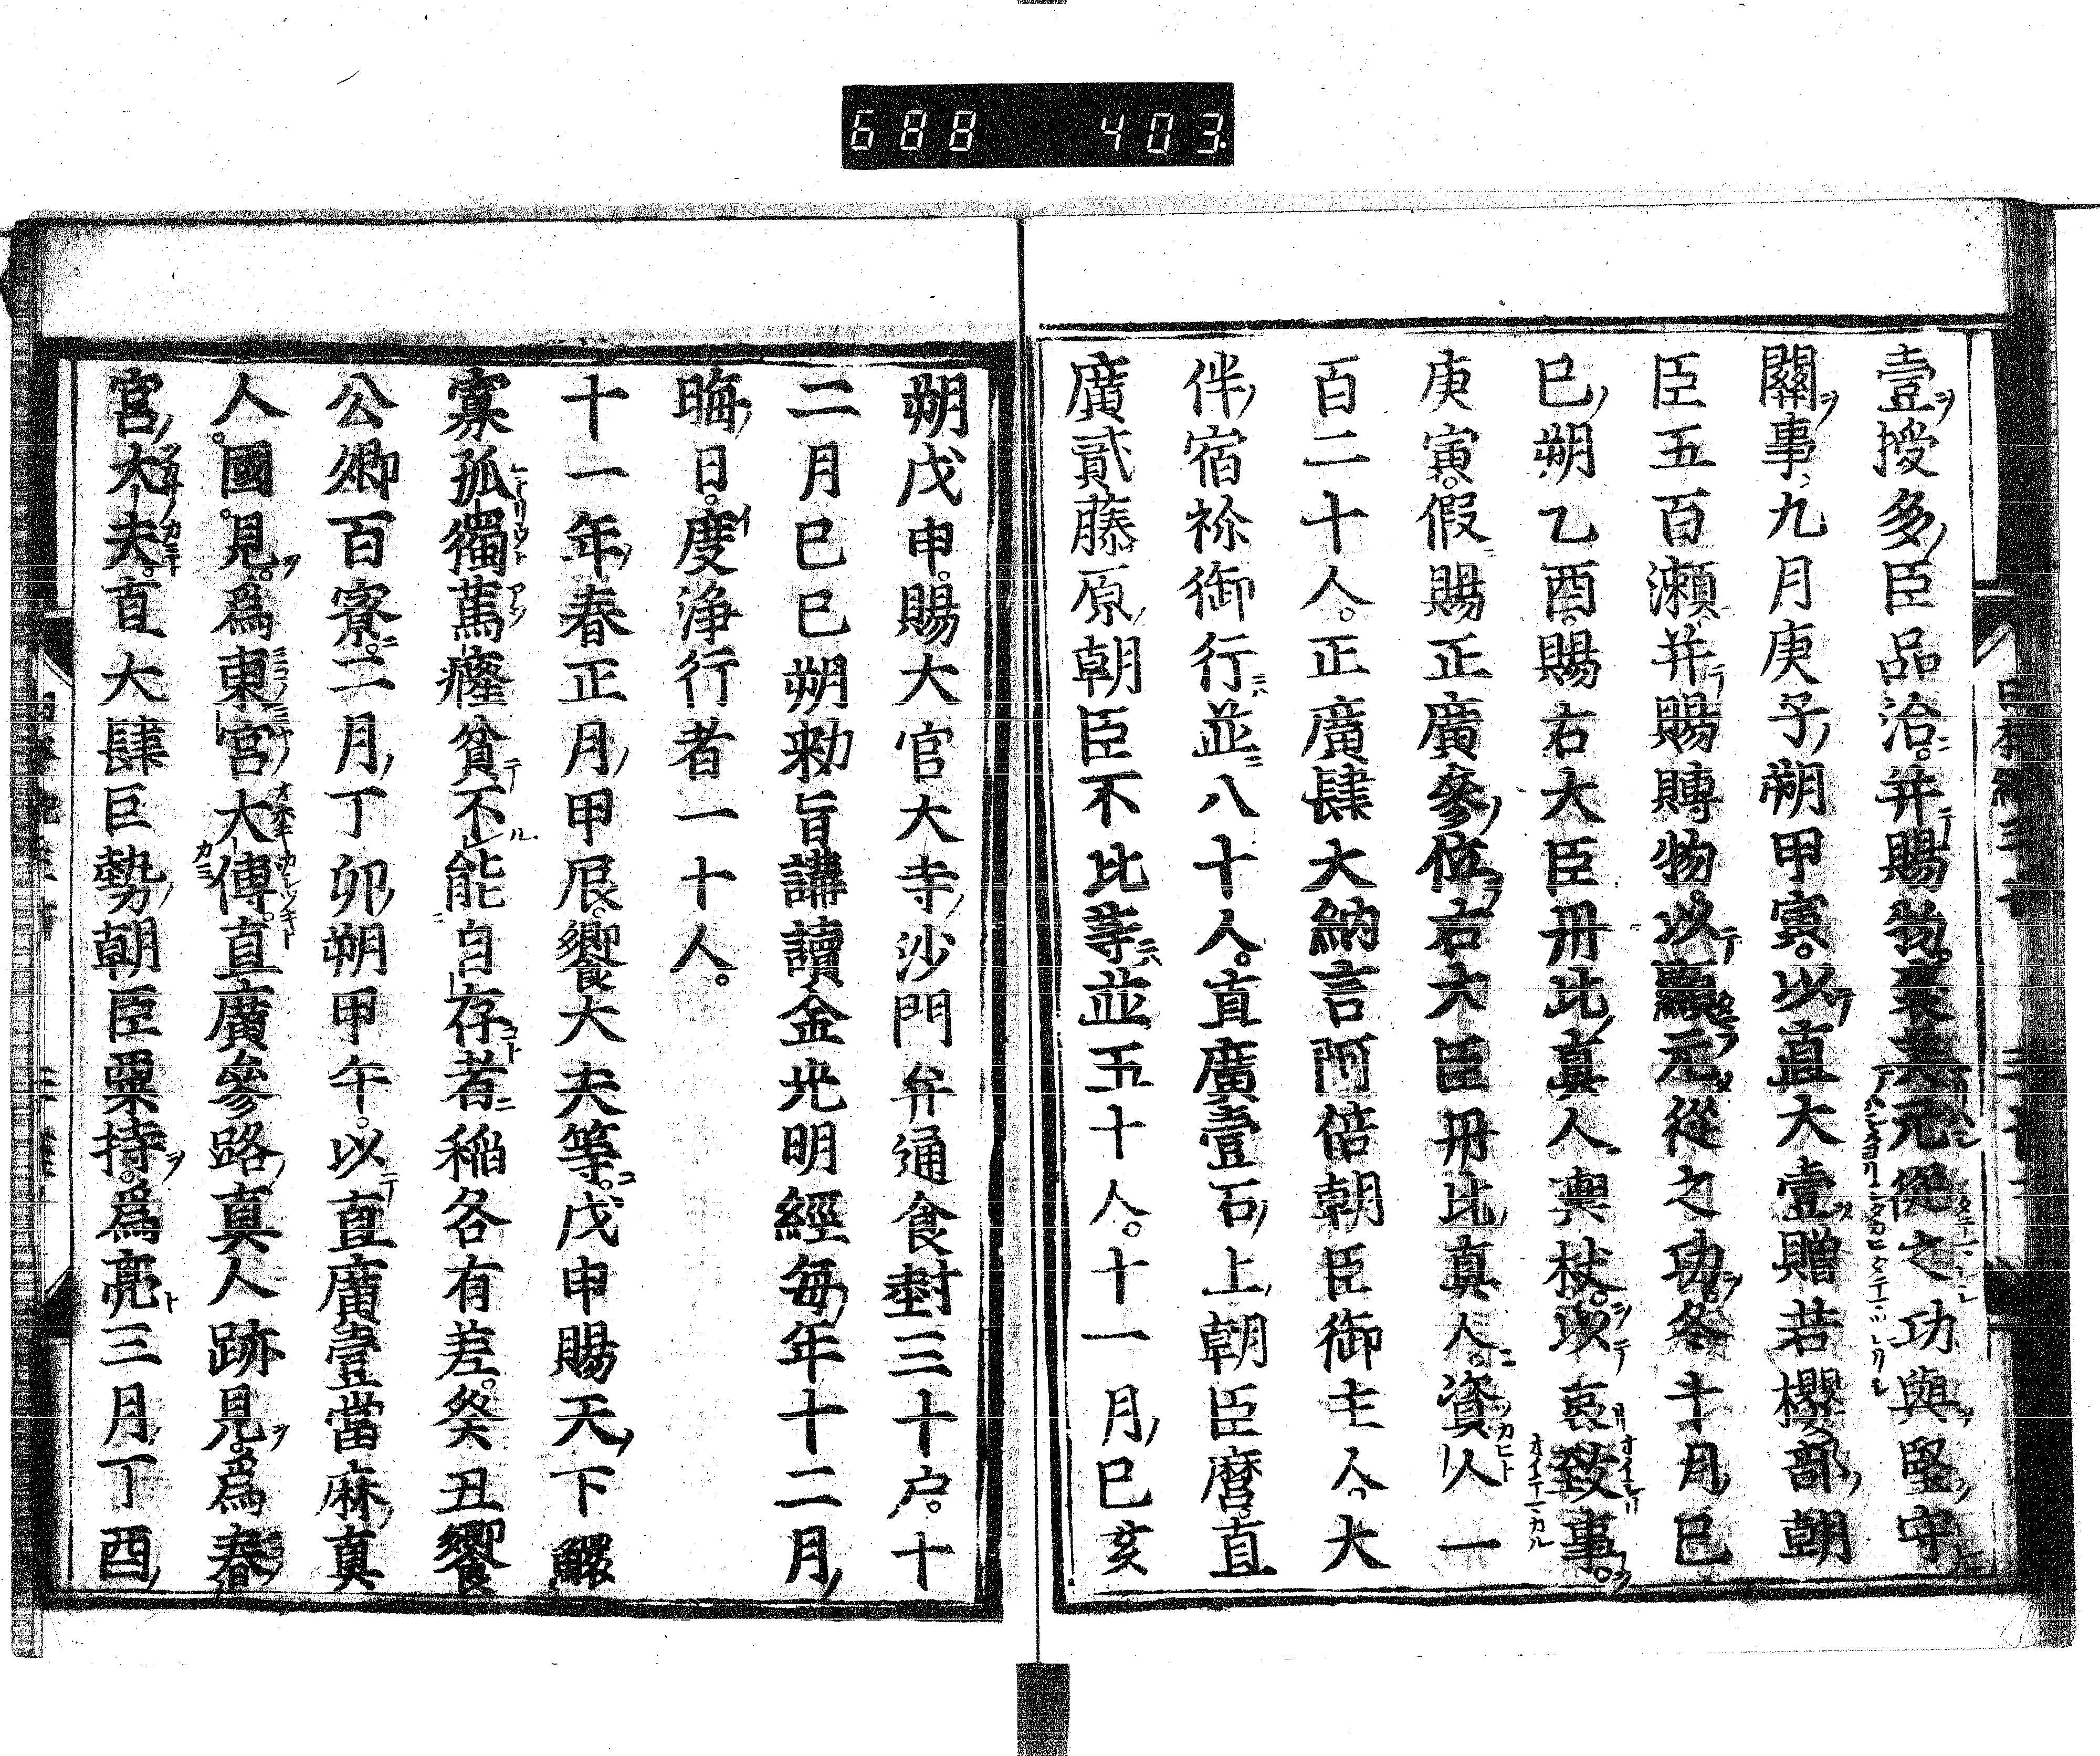 688 403
壹授多臣品治并賜物褒美元從之功與堅守
關事九月庚子朔甲寅以直大壹贈若櫻部朝
臣五百瀬并賜賻物以顯元從之功冬十月己
巳朔乙酉賜右大臣丹比真人輿杖以哀致事
庚寅假賜正廣參位右大臣丹比真人資人一
百二十人正廣肆大納言阿倍朝臣御主人大
伴宿祢御行並八十人直廣壹石上朝臣麿直
廣貳藤原朝臣不比等並五十人十一月己亥
朔戊申賜大官大寺沙門弁通食封三十戸十
二月己巳朔勅旨講讀金光明經毎年十二月
晦日度浄行者一十人
十一年春正月甲辰饗大夫等戊申賜天下鰥
寡孤獨篤癃貧不能自存者稲各有差癸丑饗
公卿百寮二月丁卯朔甲午以直廣壹當麻真
人國見爲東宮大傅直廣參路真人跡見爲春
宮大夫直大肆巨勢朝臣粟持爲亮三月丁酉